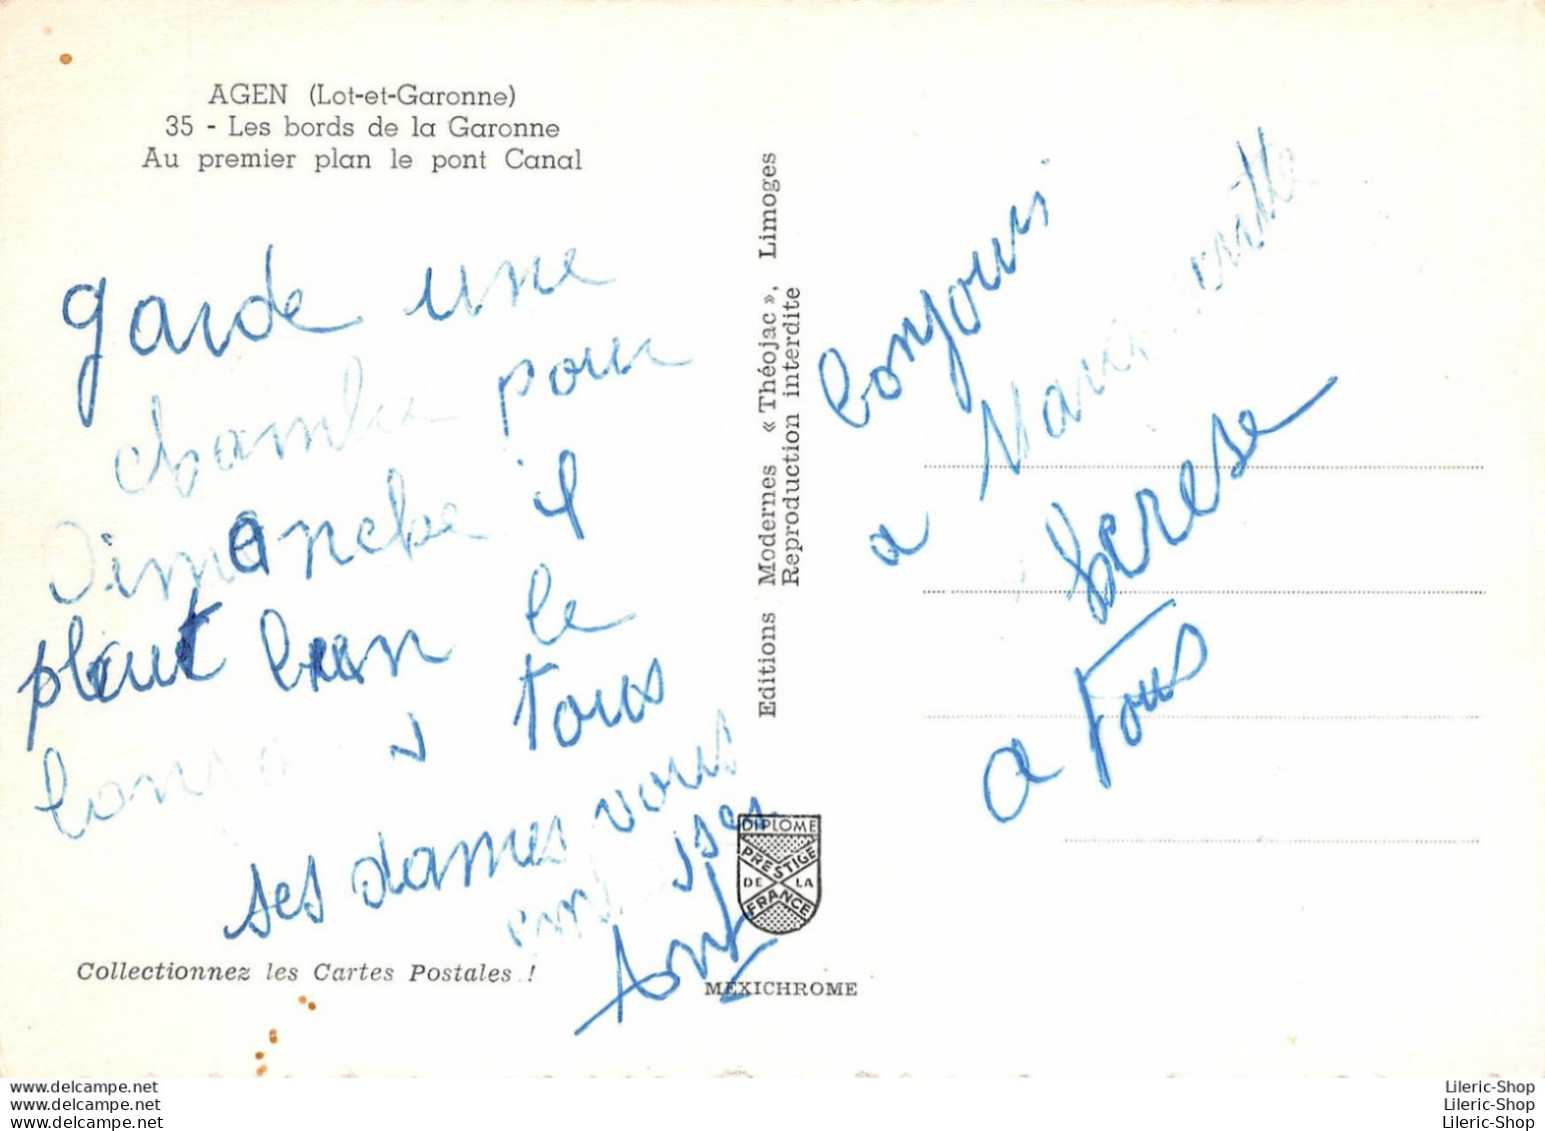 AGEN (Lot-et-Garonne)
35 - Les bords de la Garonne
Au premier plan le pont Canal
garde une
chambre pour
Dimanche il
pleut bien le
tous
ses dames vous
Collectionnez les Cartes Postales !
Editions Modernes « Théojac », Limoges
Reproduction interdite
DIPLOME
PRESTIGE
DE LA
FRANCE
MEXICHROME
bonjours
a
a Tous
www.delcampe.net
www.delcampe.net
www.delcampe.net
Lileric-Shop
Lileric-Shop
Lileric-Shop